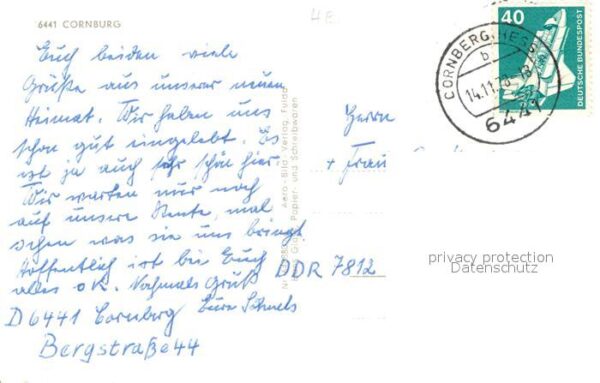 6441 CORNBURG
40
DEUTSCHE BUNDESPOST
CORNBERG, HESS
b
14.11.78-18
6441
Euch beiden viele
Grüße aus unserer neuen
Heimat. Wir haben uns
schon gut eingelebt. Es
ist ja auch sehr schön hier.
Wir warten nur noch
auf unsere Rente, mal
sehen was sie uns bringt
Hoffentlich ist bei Euch
alles OK. Nochmals Gruß
Eure
D6441 Cornberg
Bergstraße 44
Aero-Bild-Verlag, Fulda
Papier- und Schreibwaren
Herrn
+ Frau
DDR 7812
privacy protection
Datenschutz